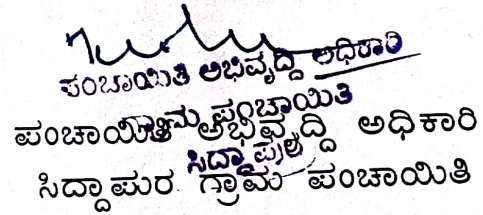 ಪಂಚಾಯಿತಿ ಅಭಿವೃದ್ಧಿ ಅಧಿಕಾರಿ
ಗ್ರಾಮ ಪಂಚಾಯಿತಿ
ಪಂಚಾಯಿತಿ ಅಭಿವೃದ್ಧಿ ಅಧಿಕಾರಿ
ಸಿದ್ದಾಪುರ
ಸಿದ್ದಾಪುರ ಗ್ರಾಮ ಪಂಚಾಯಿತಿ